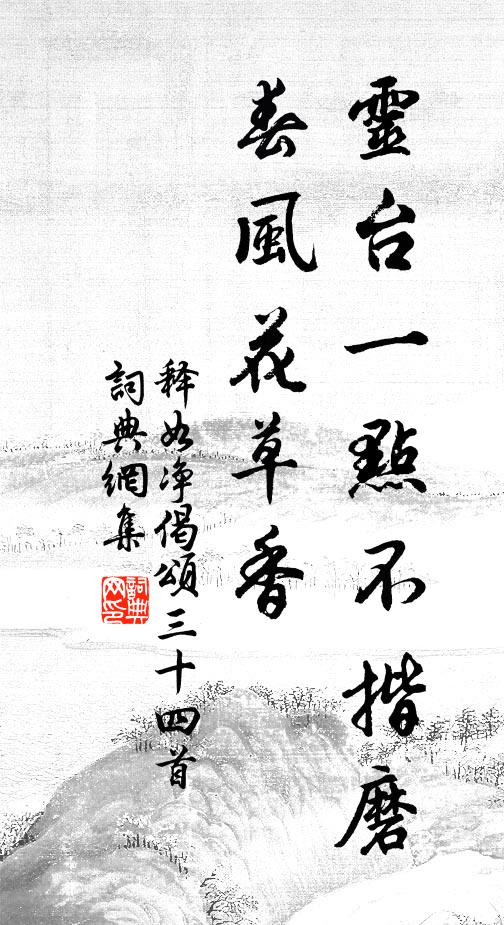 靈台一點不揩磨
春風花草香
释如净偈頌三十四首
詞典網集
詞典